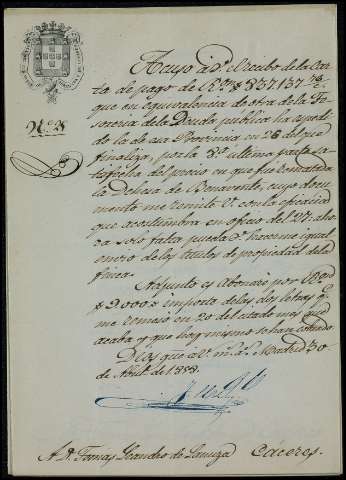 Nº 3
Acuso á V. el recibo de la Car-
ta de pago de Rs vn $ 837.137
que en equivalencia de otra de la Te-
soreria de la Deuda publica ha expedi-
do la de esa Provincia en 26 del que
finaliza, por la 8ª ultima parte sa-
tisfecha del precio en que fue contratada
la Dehesa de Benavente, cuyo docu-
mento me remite V. con la eficacia
que acostumbra en oficio del 27, aho-
ra solo falta pueda V. hacerme igual
envio de los titulos de propiedad de la
finca.
Adjunto y abonaré por
$ 9000 á importe de las dos letras q.
me remesó en 20 del citado mes que
acaba y que hoy mismo se han cobrado
Dios gue á V. m. a. Madrid 30
de Abril de 1858.
A D. Tomas Leandro de Lanuza Cáceres.